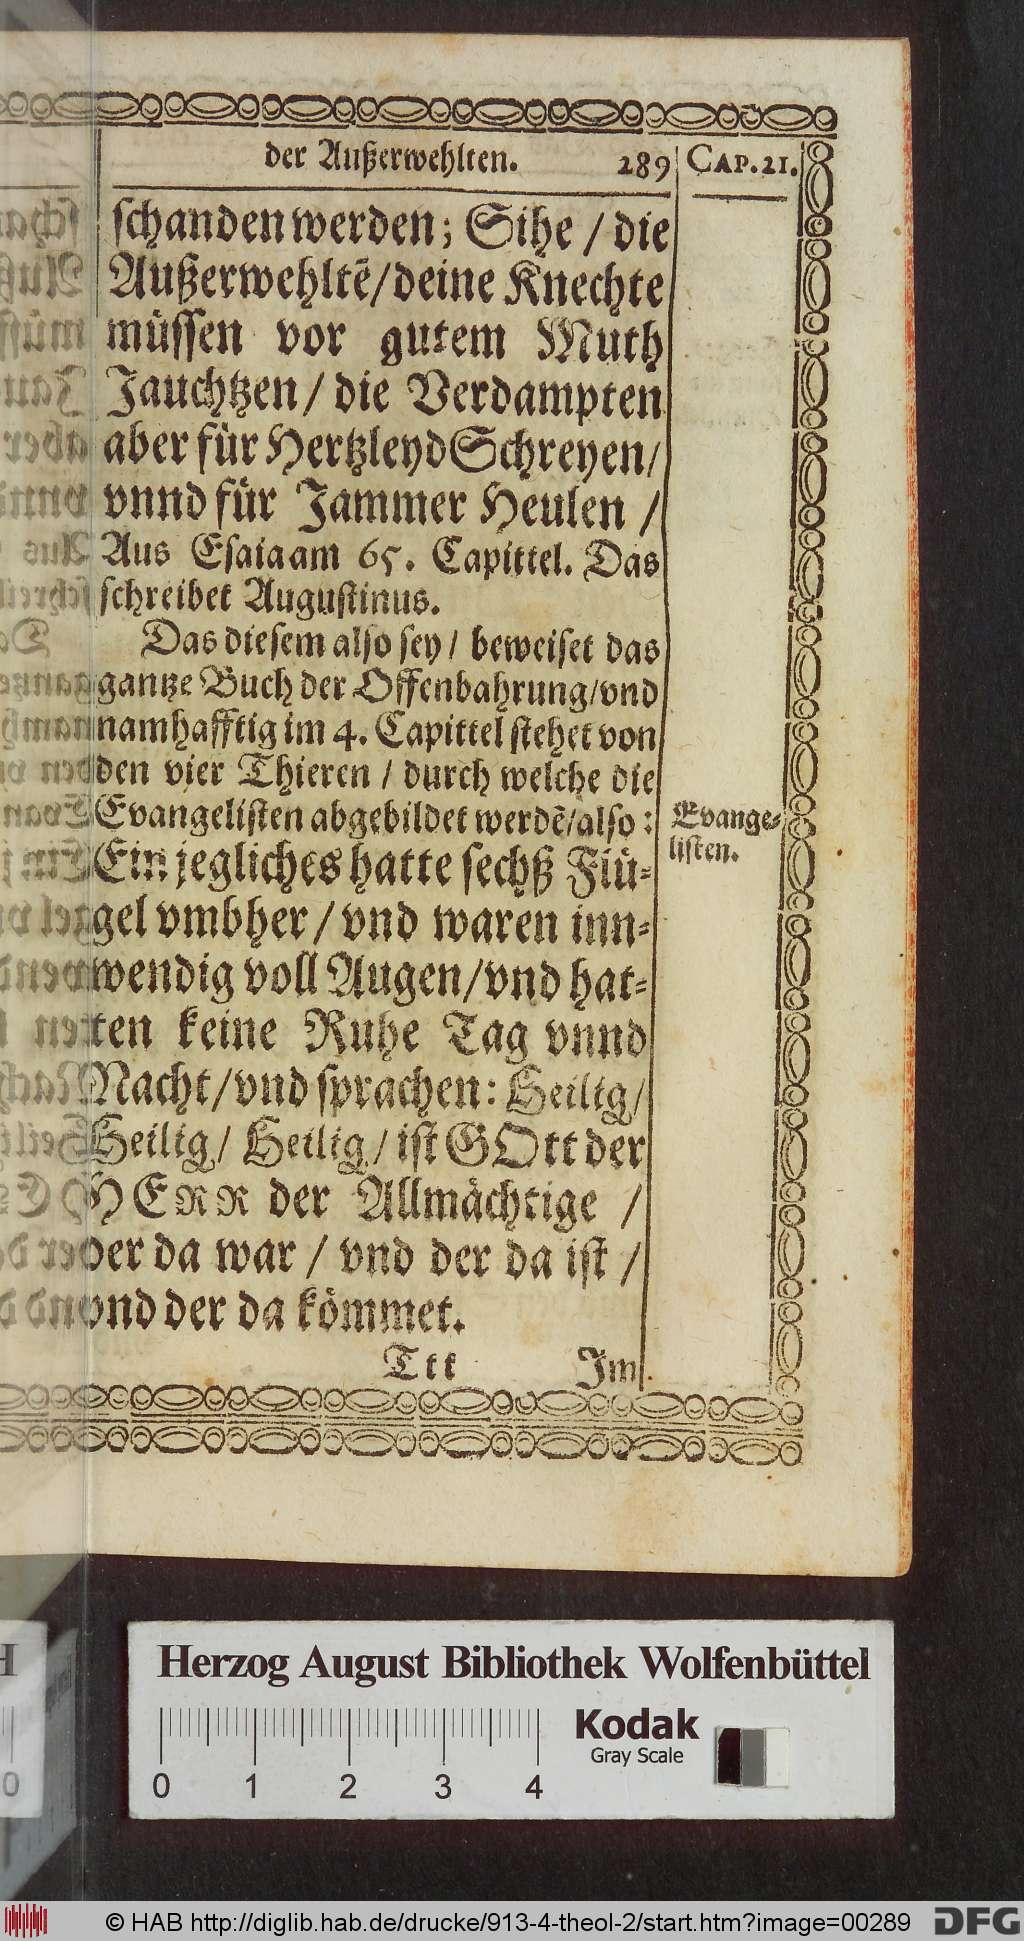 der Außerwehlten. 289 CAP.21.
schanden werden; Sihe / die
Außerwehltẽ/deine Knechte
müssen vor gutem Muth
Jauchtzen / die Verdampten
aber für Hertzleyd Schreyen/
vnnd für Jammer Heulen /
Aus Esaia am 65. Capittel. Das
schreibet Augustinus.
Das diesem also sey / beweiset das
gantze Buch der Offenbahrung/vnd
namhafftig im 4. Capittel stehet von
den vier Thieren / durch welche die
Evangelisten abgebildet werdẽ/also:
Evange-
listen.
Ein jegliches hatte sechß Flü-
gel vmbher / vnd waren inn-
wendig voll Augen/vnd hat-
ten keine Ruhe Tag vnnd
Nacht/vnd sprachen: Heilig/
Heilig/ Heilig/ ist GOtt der
HERR der Allmächtige /
der da war / vnd der da ist /
vnd der da kömmet.
Ttt Im
Herzog August Bibliothek Wolfenbüttel
Kodak
Gray Scale
0 1 2 3 4
© HAB http://diglib.hab.de/drucke/913-4-theol-2/start.htm?image=00289 DFG